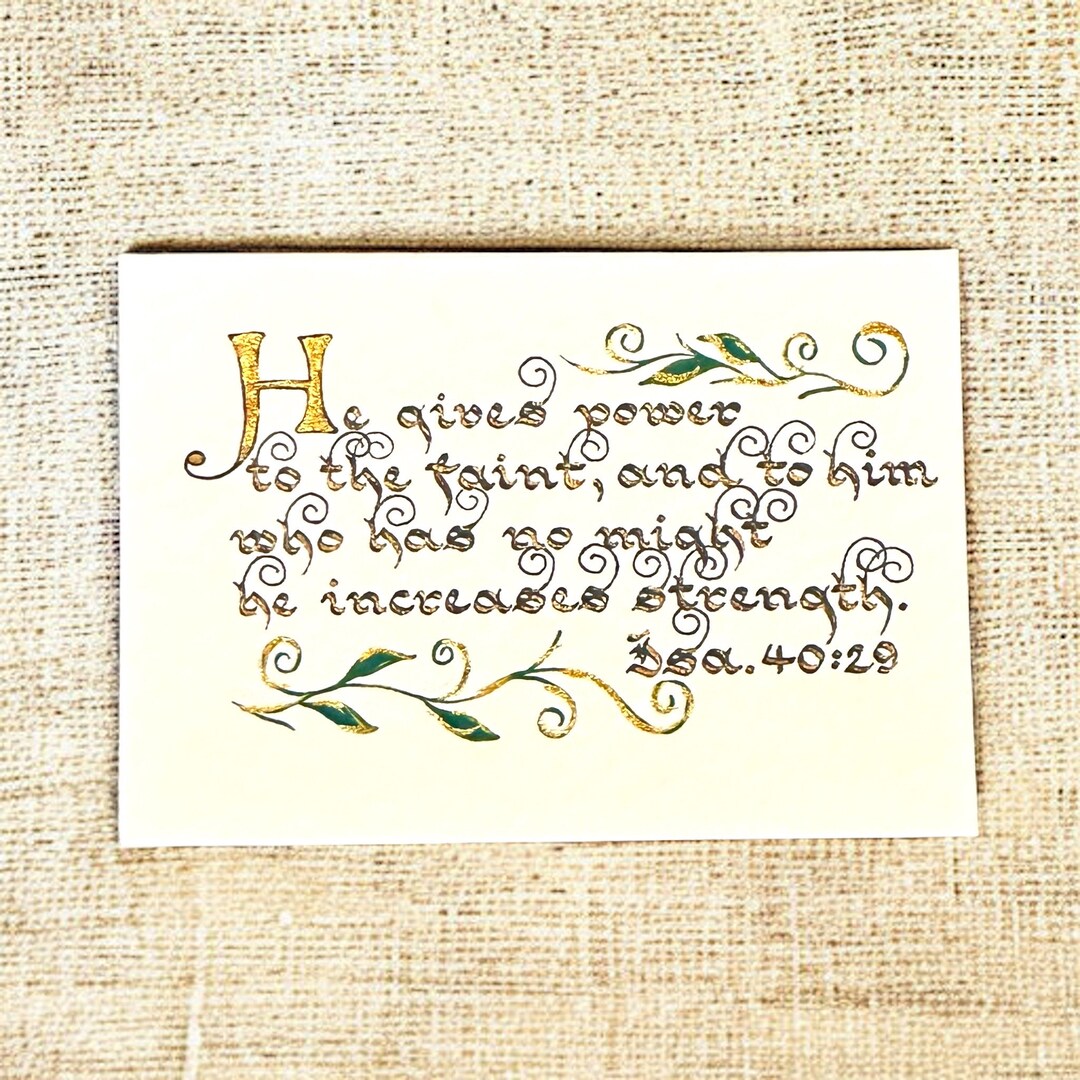 He gives power
to the faint, and to him
who has no might
he increases strength.
Isa. 40:29